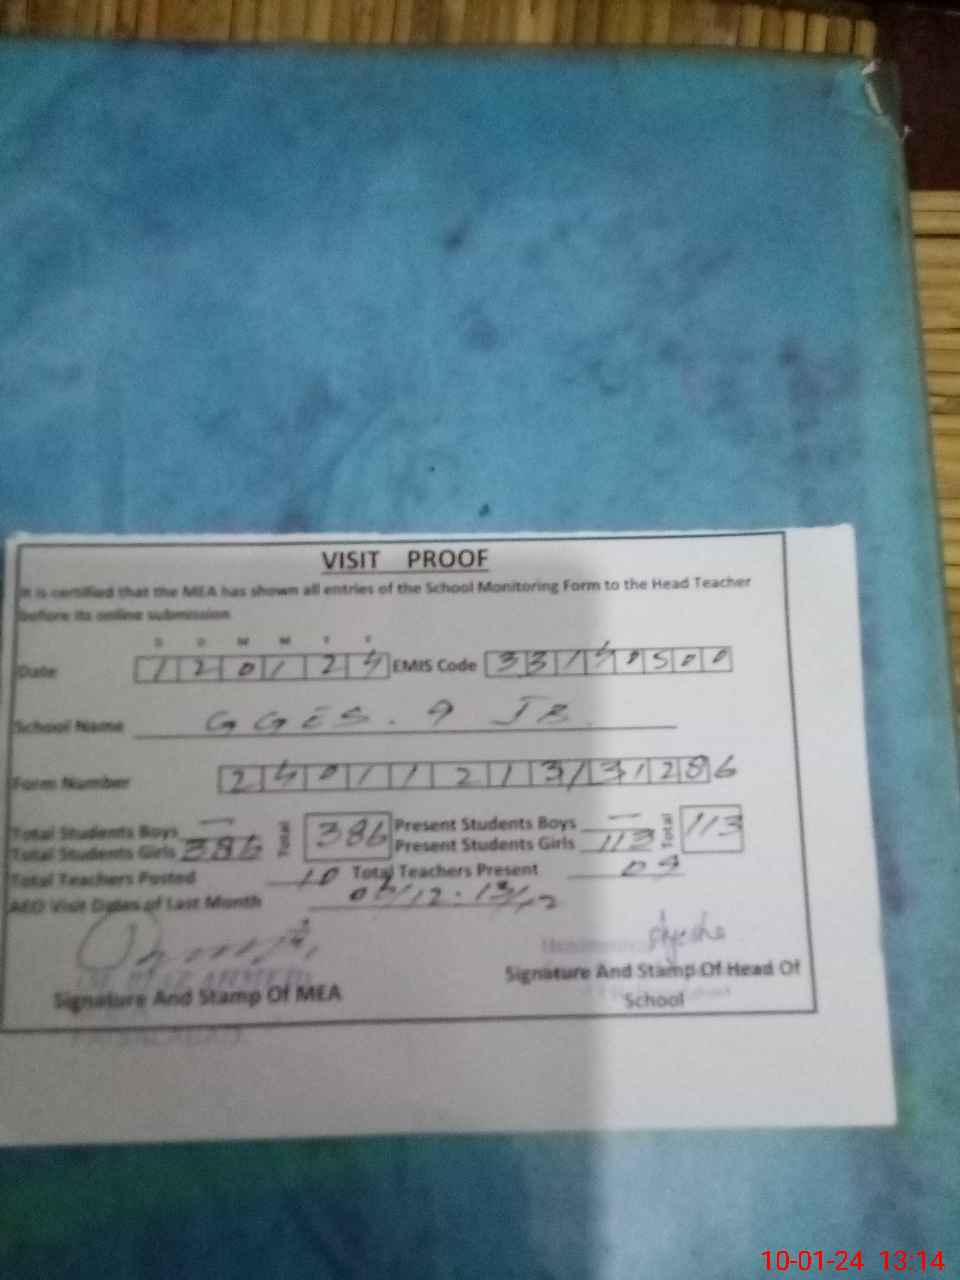 VISIT PROOF
It is certified that the MEA has shown all entries of the School Monitoring Form to the Head Teacher
before its online submission
D D M M Y Y
Date 1 2 0 1 2 4 EMIS Code 3 3 1 4 0 5 0 0
School Name GGES. 9 JB.
Form Number
Total Students Boys — Total 386 Present Students Boys — Total 113
Total Students Girls 386 Present Students Girls 113
Total Teachers Posted 10 Total Teachers Present 09
AEO Visit Dates of Last Month
Signature And Stamp Of MEA
Signature And Stamp Of Head Of
School
10-01-24 13:14